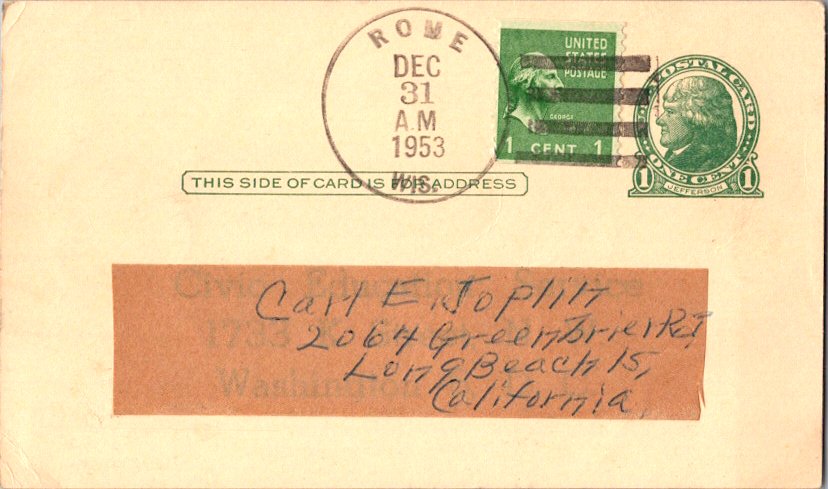 ROME
DEC
31
A.M
1953
WIS.
UNITED
STATES
POSTAGE
GEORGE
1 CENT 1
POSTAL CARD
1 ONE CENT 1
JEFFERSON
THIS SIDE OF CARD IS FOR ADDRESS
Carl E Joplin
2064 Greenbrier Rd
Long Beach 15,
California
Civic Education Service
1733
Washington